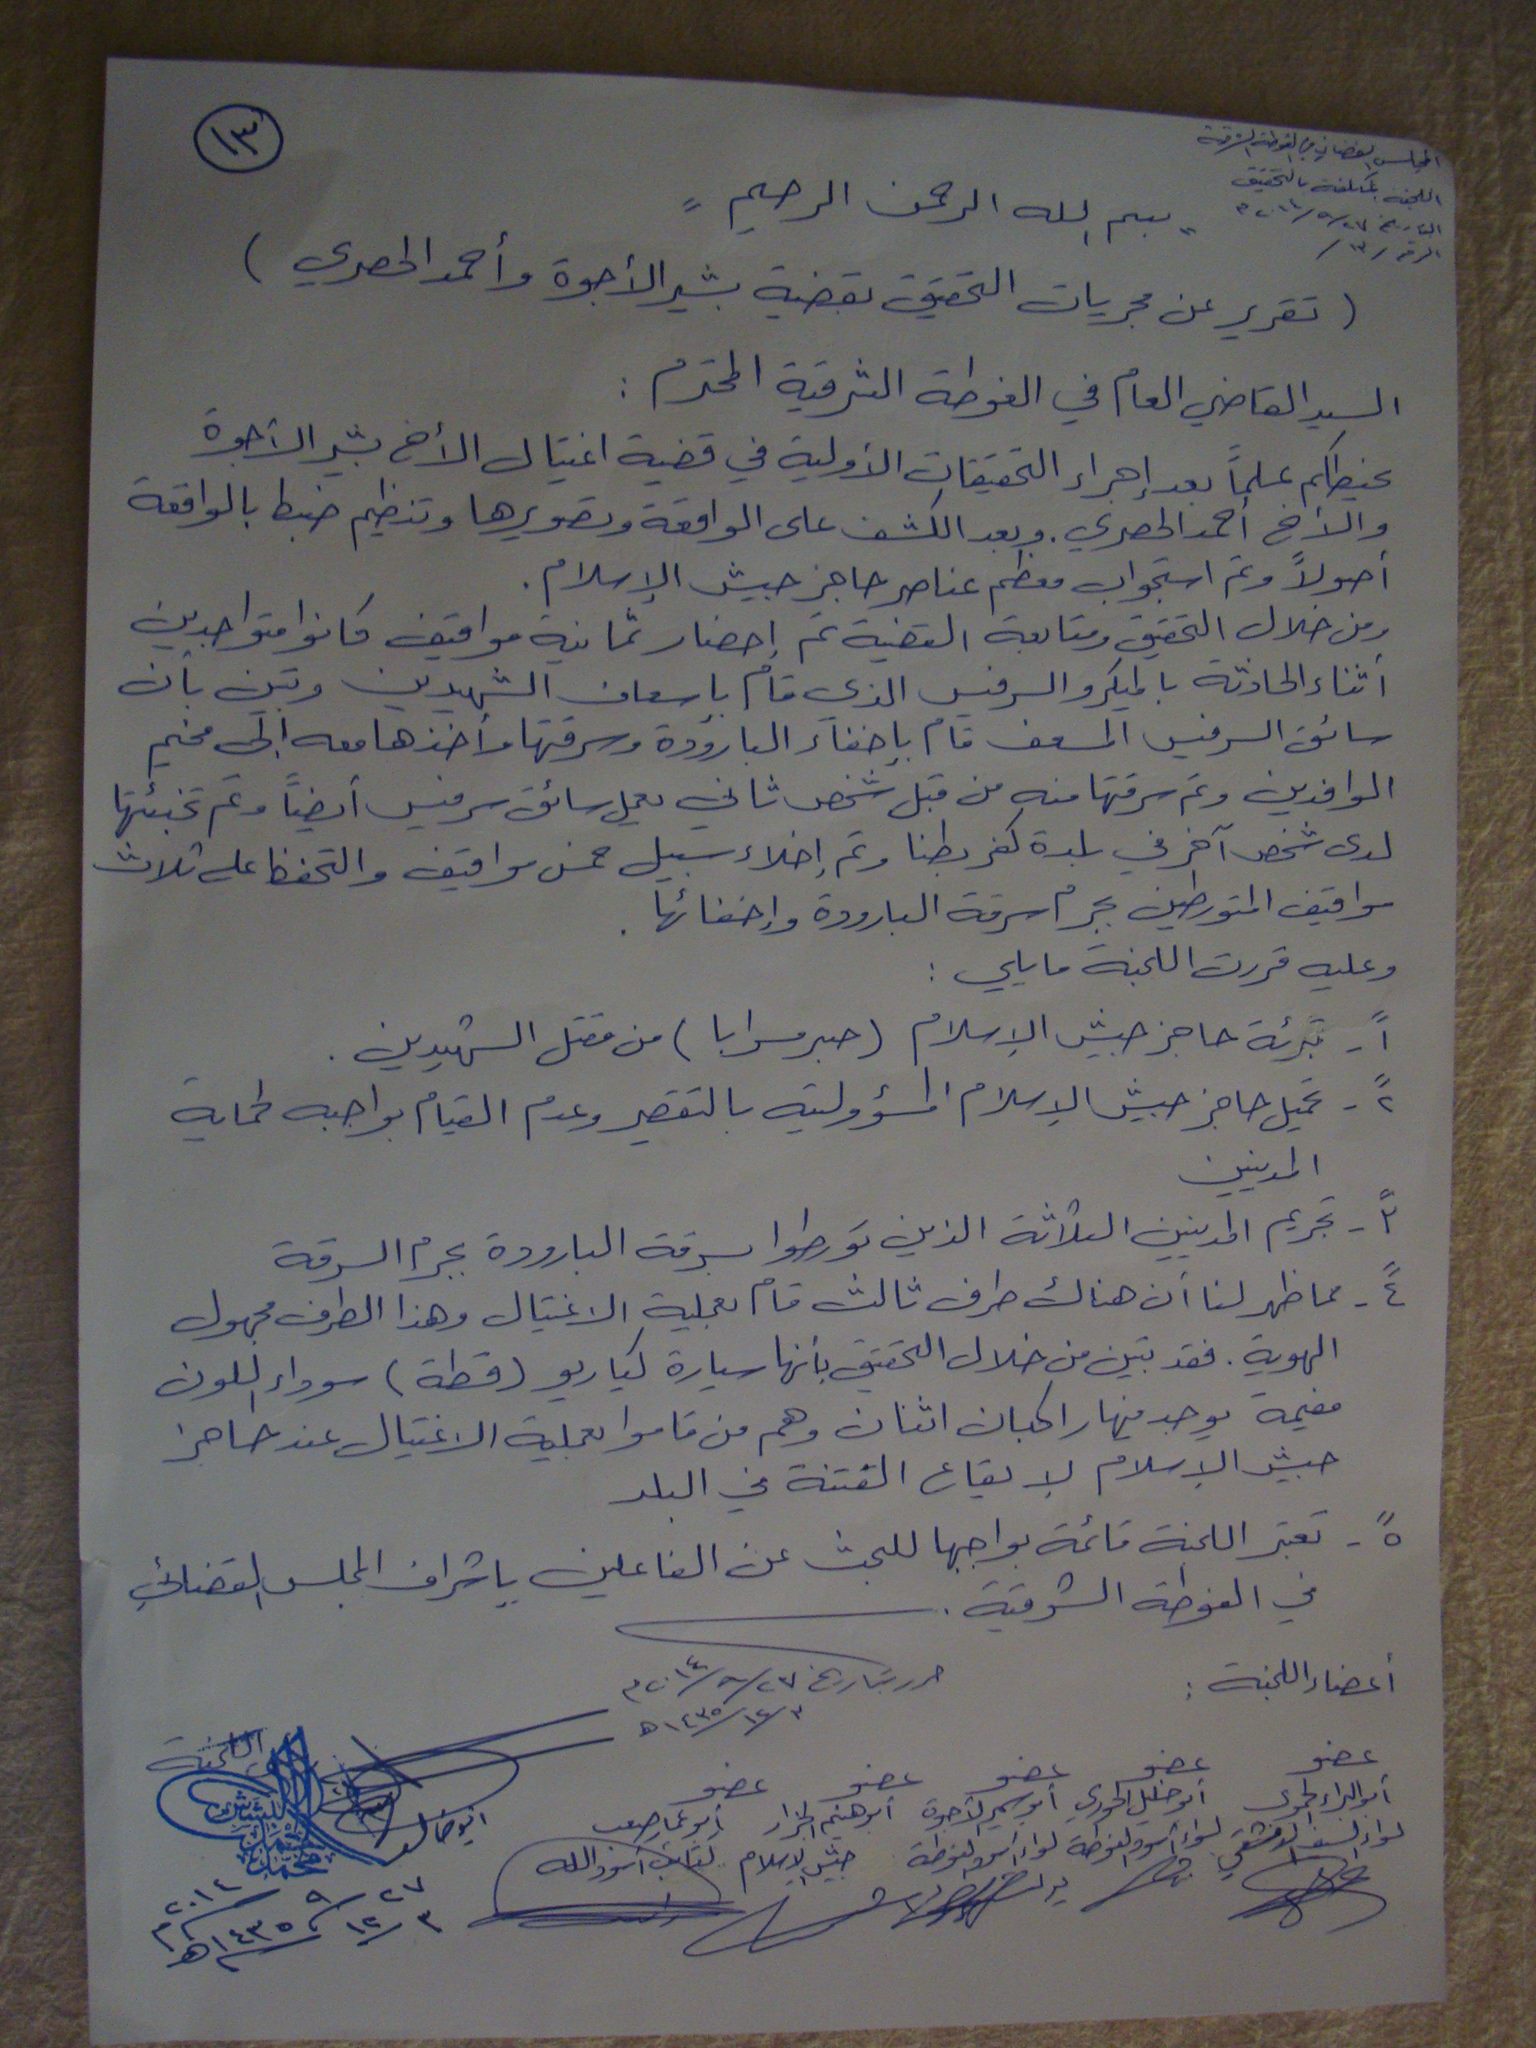 ١٣
المجلس القضائي في الغوطة الشرقية
اللجنة المكلفة بالتحقيق
التاريخ ٢٧/٩/٢٠١٤م
الرقم /١٣/
" بسم الله الرحمن الرحيم "
( تقرير عن مجريات التحقيق بقضية بشير الأجوة وأحمد الحصري )
السيد القاضي العام في الغوطة الشرقية المحترم :
نحيطكم علماً بعد إجراء التحقيقات الأولية في قضية اغتيال الأخ بشير الأجوة
والأخ أحمد الحصري . وبعد الكشف على الواقعة وتصويرها وتنظيم ضبط بالواقعة
أصولاً وتم استجواب معظم عناصر حاجز جيش الإسلام .
ومن خلال التحقيق ومتابعة القضية تم إحضار ثمانية مواقيف كانوا متواجدين
أثناء الحادثة بالميكرو السرفيس الذي قام بإسعاف الشهيدين وتبين بأن
سائق السرفيس المسعف قام بإخفاء البارودة وسرقتها وأخذها معه إلى مخيم
الوافدين وتم سرقتها منه من قبل شخص ثاني يعمل سائق سرفيس أيضاً وتم تخبئتها
لدى شخص آخر في بلدة كفربطنا وتم إخلاء سبيل خمس مواقيف والتحفظ على ثلاث
مواقيف المتورطين بجرم سرقة البارودة وإخفائها .
وعليه قررت اللجنة مايلي :
١ً- تبرئة حاجز جيش الإسلام (جسر مسرابا) من مقتل الشهيدين .
٢ً- تحميل حاجز جيش الإسلام المسؤولية بالتقصير وعدم القيام بواجبه لحماية
المدنيين
٣ً- تجريم المدنيين الثلاثة الذين تورطوا بسرقة البارودة بجرم السرقة
٤ً- مما ظهر لنا أن هناك طرف ثالث قام بعملية الاغتيال وهذا الطرف مجهول
الهوية . فقد تبين من خلال التحقيق بأنها سيارة كيا ريو (قطة) سوداء اللون
مفيمة يوجد فيها راكبان اثنان وهم من قاموا بعملية الاغتيال عند حاجز
جيش الإسلام لإيقاع الفتنة في البلد
٥ً- تعتبر اللجنة قائمة بواجبها للبحث عن الفاعلين بإشراف المجلس القضائي
في الغوطة الشرقية .
حرر بتاريخ ٢٧/٩/٢٠١٤م
٣/١٢/١٤٣٥هـ
أعضاء اللجنة :
عضو عضو عضو عضو عضو
أبو البراء أبو خليل أبو سمير الأجوة أبو هيثم الجزار أبو عمار
لواء سيف الدمشقي لواء أسود الغوطة لواء أسود الغوطة جيش الإسلام كتائب أسود الله
٢٧/٩/٢٠١٤م
٣/١٢/١٤٣٥هـ